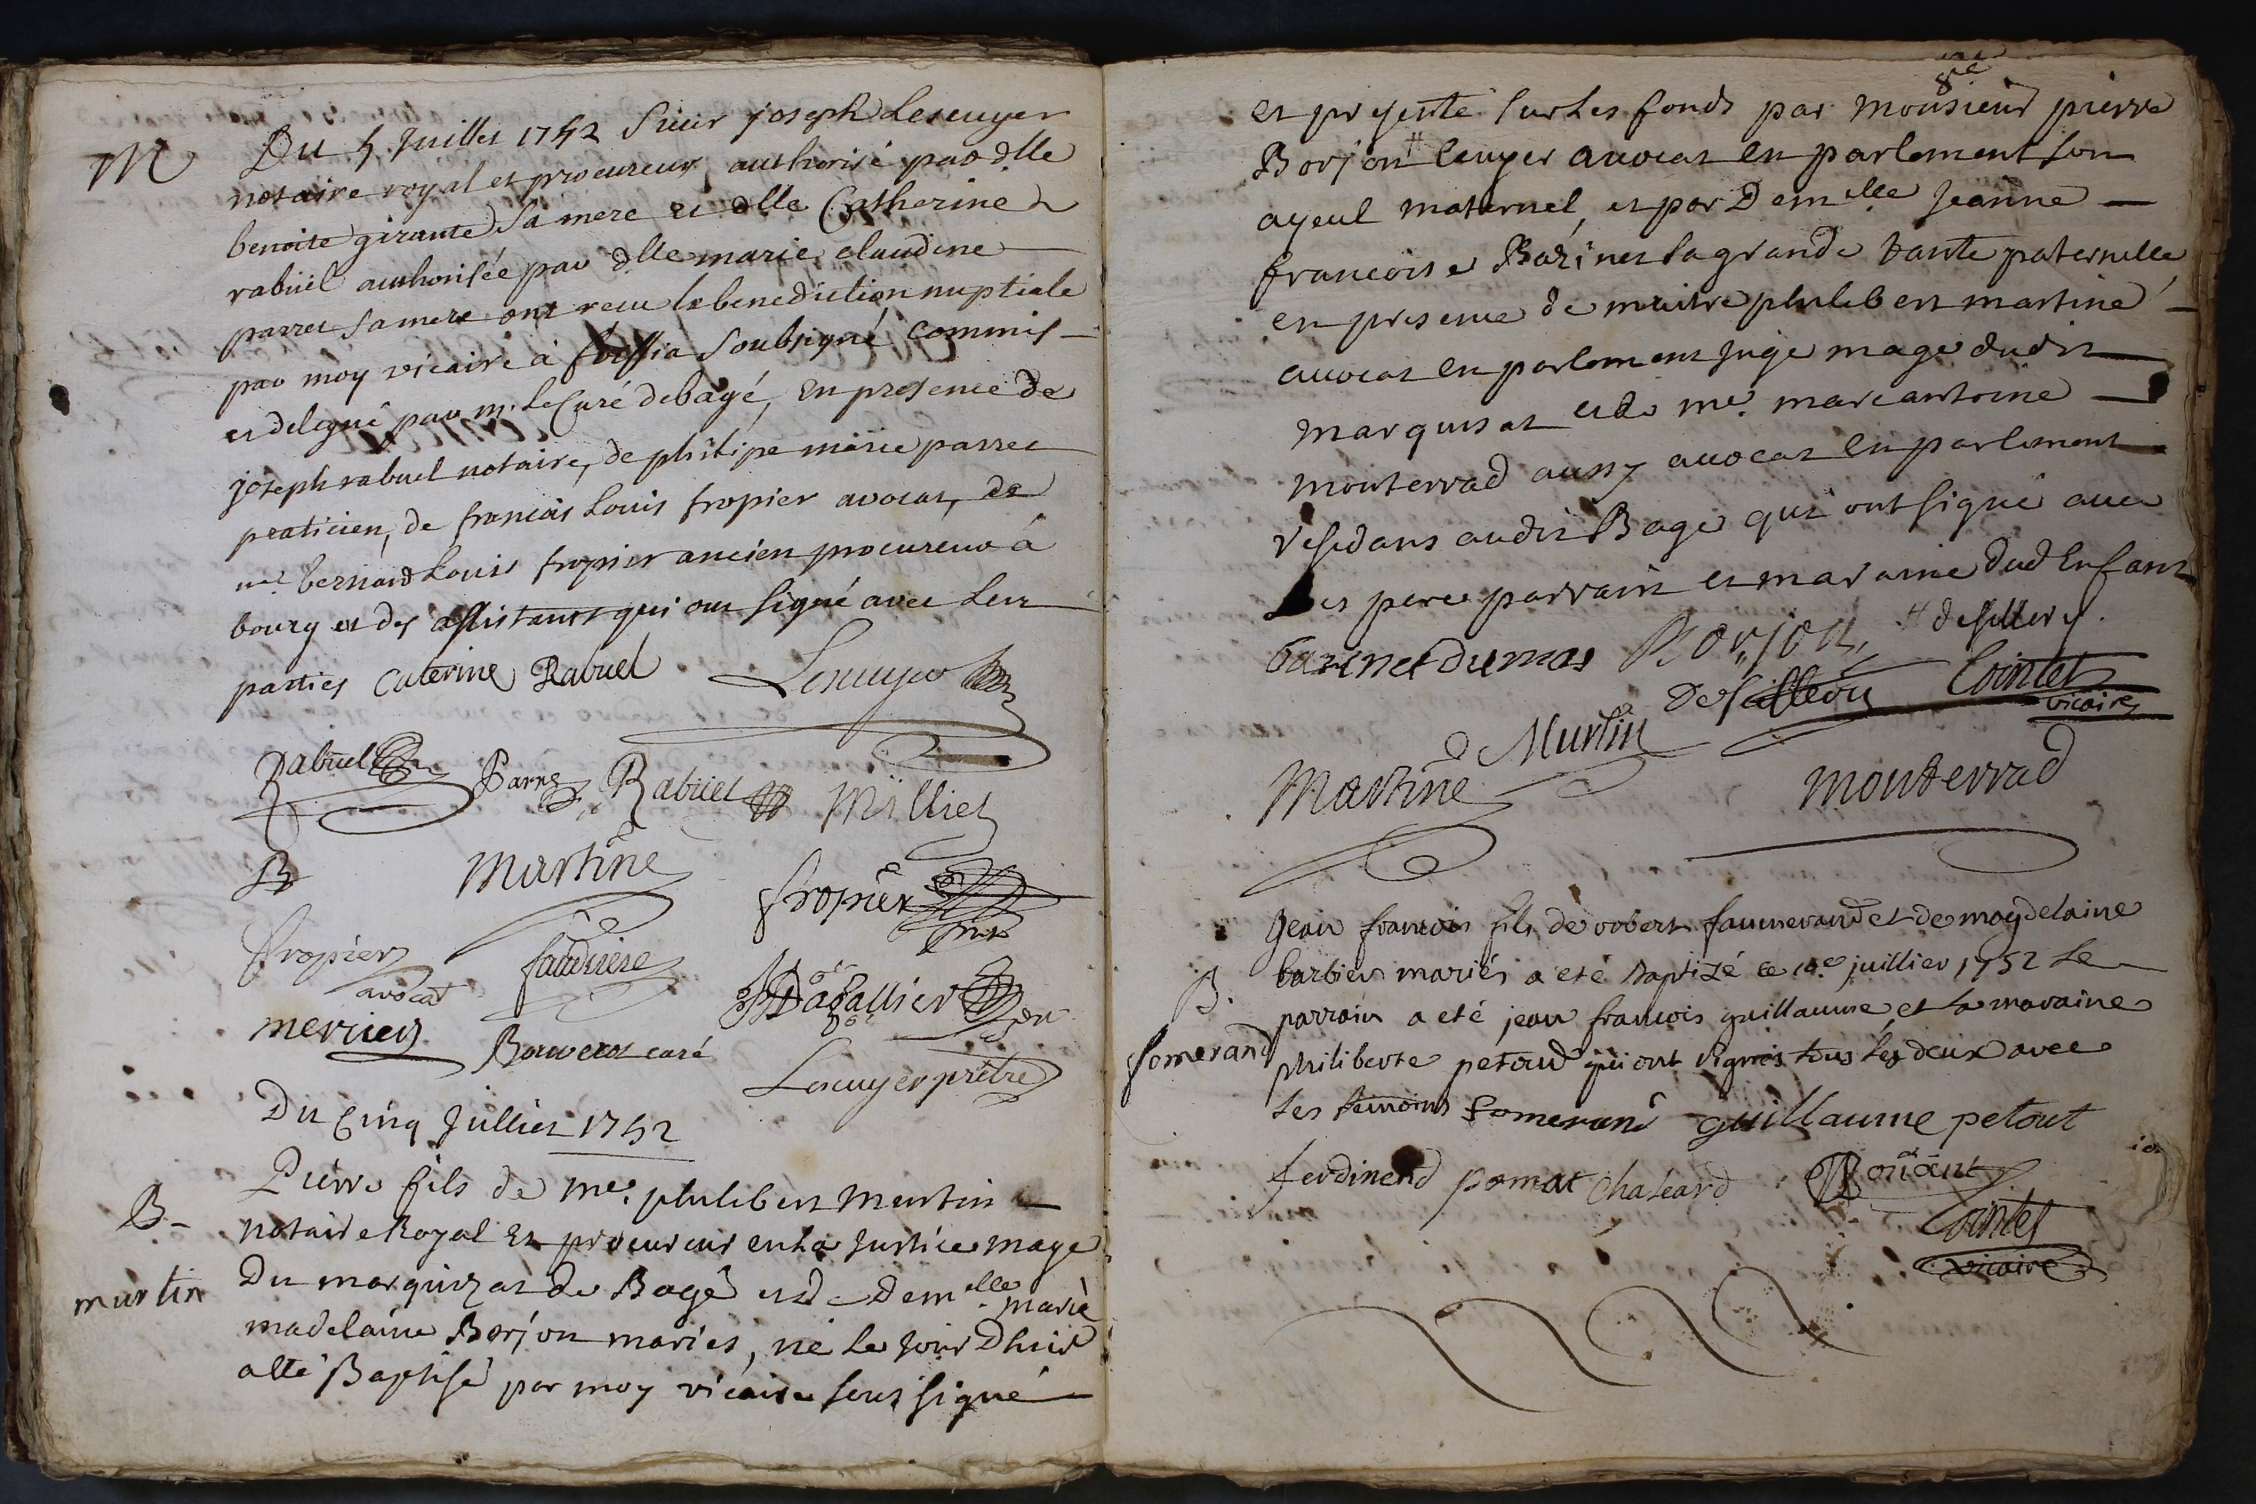 M
Du 5 Juillet 1752 Sieur joseph Lescuyer
notaire royal et procureur authorisé par dlle
benoite giraute sa mere et dlle Catherine
rabüel authorisée par dlle marie claudine
parret sa mere ont recu la benediction nuptiale
par moy vicaire à foissia soubsigné commis
et delegué par mr. le Curé de bagé, en presence de
joseph rabuel notaire, de philipe marie parret
praticien, de francois Louis fropier avocat, de
me. bernard Louis fropier ancien procureur à
bourg et des assistants qui ont signé avec leur
parties Caterine Rabuel Lescuyer
Rabuel Parret Rabüel Milliet
B Martine fropier
fropier avocat faudriere Dagallier
mercier Bouveret curé
Lescuyer prêtre
Du Cinq Juillet 1752
B-
murtin
Pierre fils de me. philibert murtin
notaire Royal et procureur en la Justice mage
Du marquizat de Bagé et de Demlle. marie
madelaine Borjon mariés, né le Jour Dhuit
atté Baptisé par moy vicaire sous signé
8me
et presenté sur les fonds par monsieur pierre
Borjon # Ecuyer avocat en parlement son
ayeul maternel, et par Demelle Jeanne
francoise Bazinet la grande tante paternelle
en presence de maitre philibert martine
avocat en parlement Juge mage dudit
marquisat et de me. marc antoine
monterrad aussy avocat en parlement
residans audit Bagé qui ont signé avec
Les pere parrain et maraine Dud Enfant
# de sillery.
bazinet dumas Borjon
De scillery Cointet
vicaire
Murtin
Martine monterrad
B.
fomerand
Jean francois fils de robert faumerand et de magdelaine
barbier mariés a eté baptizé ce 10e juillier 1752 le
parrain a eté jean francois guillaume et la maraine
philiberte petoud qui ont signés tous les deux avec
les temoins fomerand guillaume petout
ferdinend pomat chaleard
Cointet
vicaire